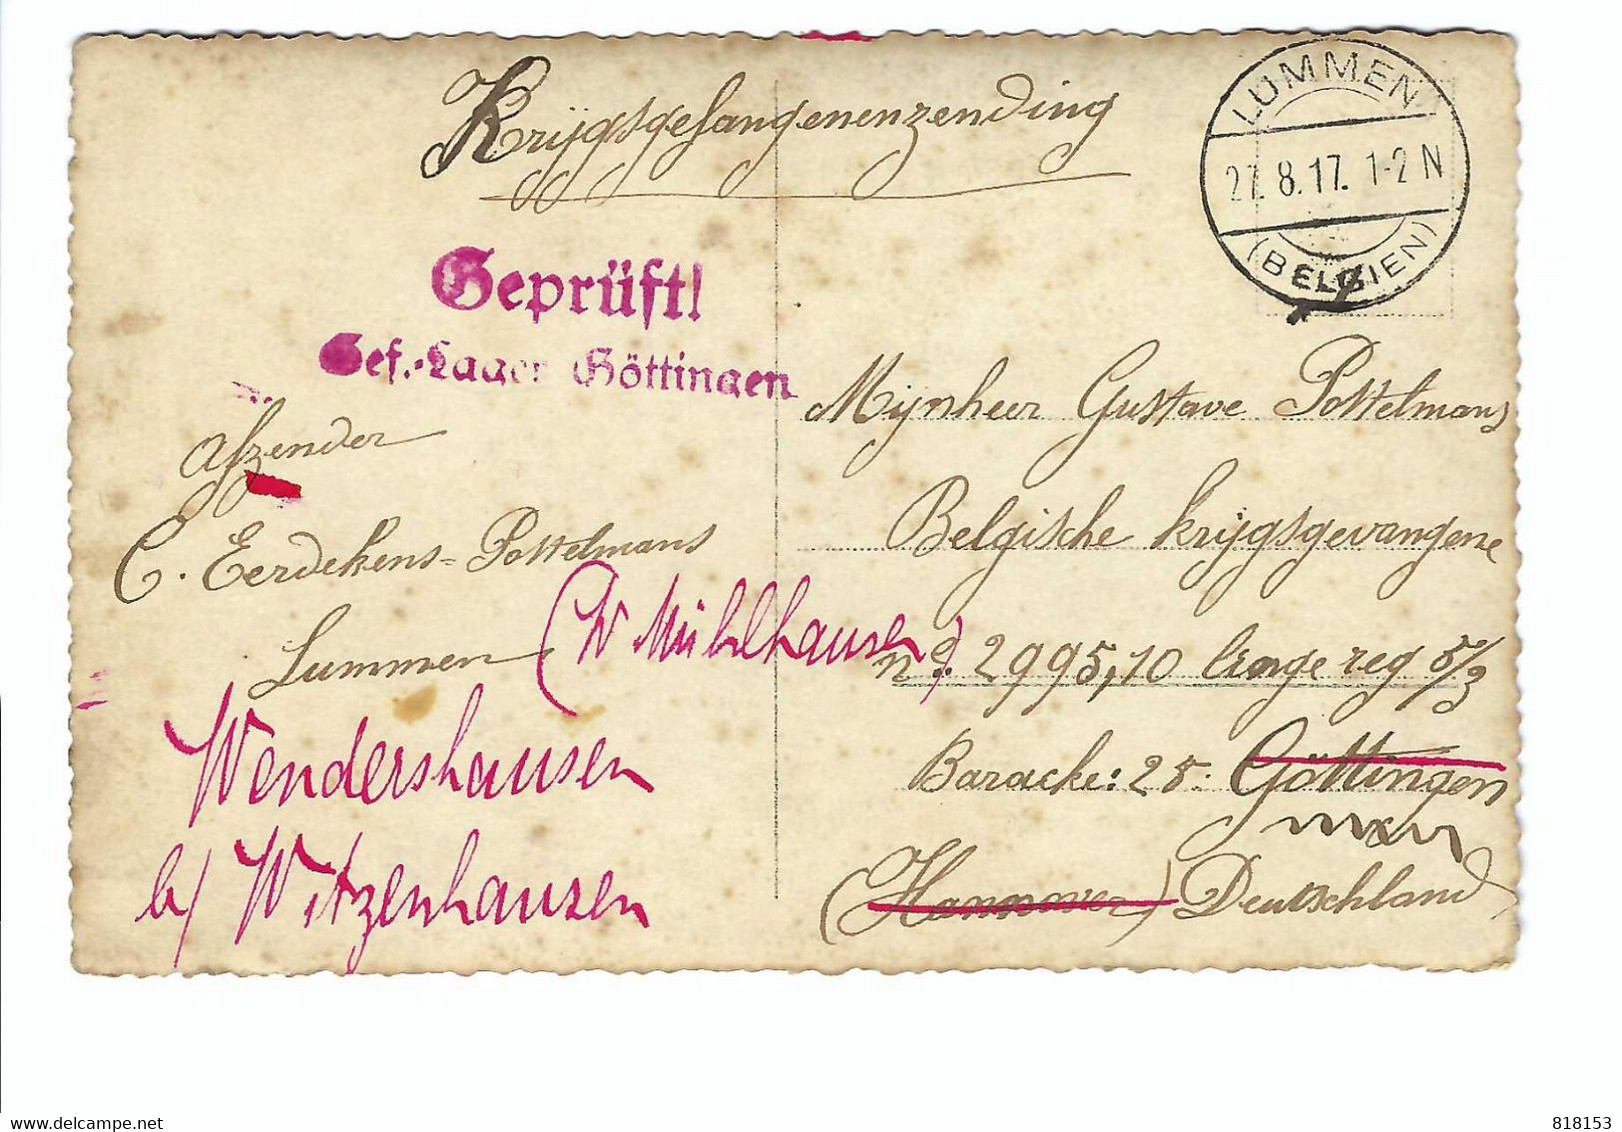 Krijgsgefangenenzending
LUMMEN
27.8.17. 1-2 N
(BELGIEN)
Geprüft!
Gef.-Lager Göttingen
Afzender
C. Eerdekens-Pottelmans
Lummen
(W Mühlhausen)
Wendershausen
b/ Witzenhausen
Mijnheer Gustave Pottelmans
Belgische krijgsgevangene
n°. 2995,10 linge reg 5/3
Baracke: 25. Göttingen
(Hannover) Deutschland
818153